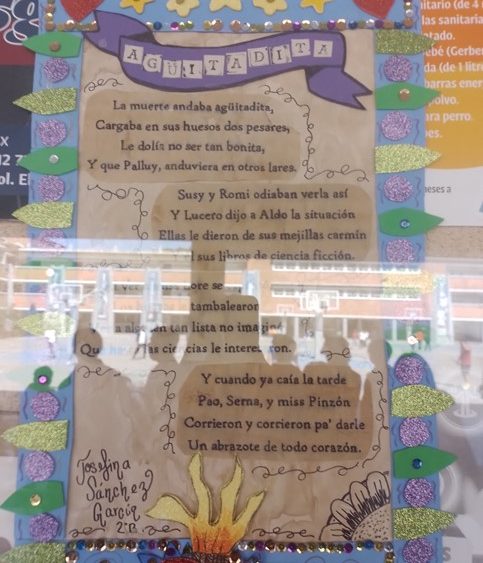 AGÜITADITA
La muerte andaba agüitadita,
Cargaba en sus huesos dos pesares,
Le dolía no ser tan bonita,
Y que Palluy, anduviera en otros lares.
Susy y Romi odiaban verla así
Y Lucero dijo a Aldo la situación
Ellas le dieron de sus mejillas carmín
sus libros de ciencia ficción.
se
tambalearon
tan lista no
las ciencias le interesaron.
Y cuando ya caía la tarde
Pao, Serna, y miss Pinzón
Corrieron y corrieron pa' darle
Un abrazote de todo corazón.
Josefina
Sánchez
García
2°B
itario (de 4
las sanitaria
tado.
ebé (Gerber
da (de 1 litro
barras ener
olvo.
ara perro.
nes.
meses a